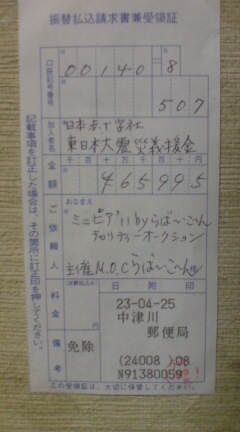 振替払込請求書兼受領証
口座記号番号
00140 8
507
加入者名
日本赤十字社
東日本大震災義援金
金額
千 百 十 万 千 百 十 円
465995
ご依頼人
おなまえ
ミニピア'11 byらば~ごん
チャリティーオークション
主催M.O.Cらば~ご~ん
料金
(消費税込み)
円
備考
免除
日附印
23-04-25
中津川
郵便局
(24008)08
N91380059
記載事項を訂正した場合は、その箇所に訂正印を押してください。
この受領証は、大切に保管してください。